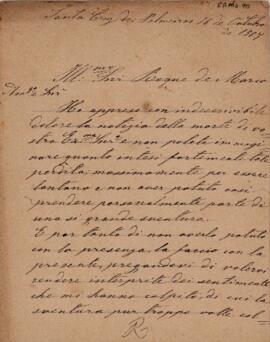 Santa Cruz das Palmeiras 16 de Outubro
de 1907
Ill.mo Snr. Roque de Marco
Ho appreso con indescrivibile
dolore la notizia della morte di vo
stra Ex.ma Sur.a e non potete immagi
nare quanto intesi fortemente tale
perdita, massimamente per essere
lontano e non aver potuto così
prendere personalmente parte
di una sì grande sventura.
E poi tanto di non averlo potuto
con la presenza, lo faccio con la
presente, pregandovi di volervi
rendere interprete dei sentimenti
che mi hanno colpito, di cui la
sventura pur troppo volle col-